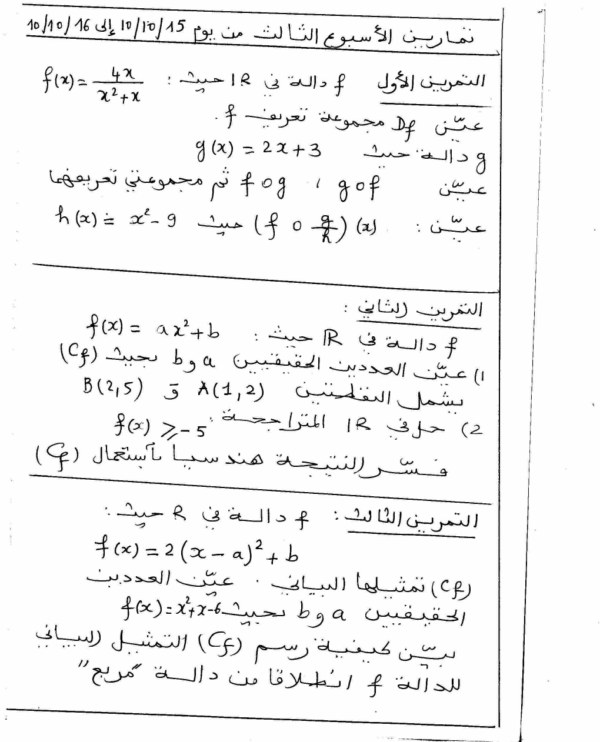 تمارين الأسبوع الثالث من يوم 10/10/15 إلى 10/10/16
التمرين الأول f دالة في IR حيث : f(x) = 4x / x²+x
عيّن Df مجموعة تعريف f.
g دالة حيث g(x) = 2x+3
عيّن gof ، fog ثم مجموعتي تعريفهما
عيّن : (f o g/h)(x) حيث h(x) = x²-9
التمرين الثاني :
f دالة في R حيث : f(x) = ax²+b
1) عيّن العددين الحقيقيين a و b بحيث (Cf)
يشمل النقطتين A(1,2) و B(2,5)
2) حل في IR المتراجحة : f(x) ≥ -5
فسّر النتيجة هندسيا بآستعمال (Cf)
التمرين الثالث : f دالة في R حيث :
f(x) = 2(x-a)²+b
(Cf) تمثيلها البياني . عيّن العددين
الحقيقيين a و b بحيث f(x)=x²+x-6
بيّن كيفية رسم (Cf) التمثيل البياني
للدالة f انطلاقا من دالة "مربع"